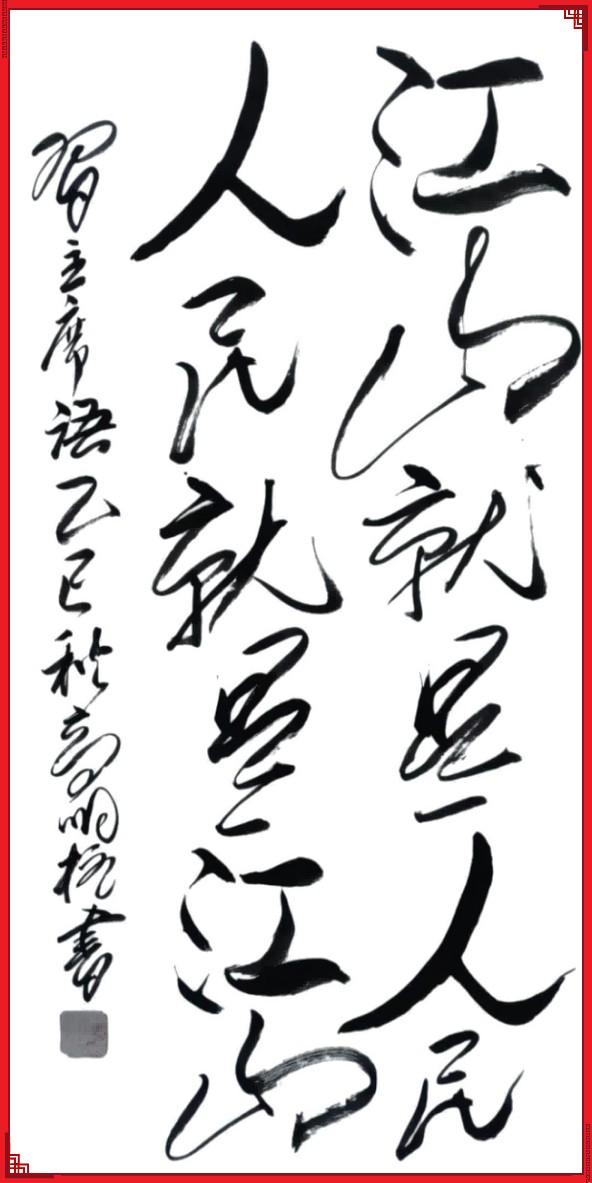 江山就是人民
人民就是江山
習主席語乙巳秋高明松書